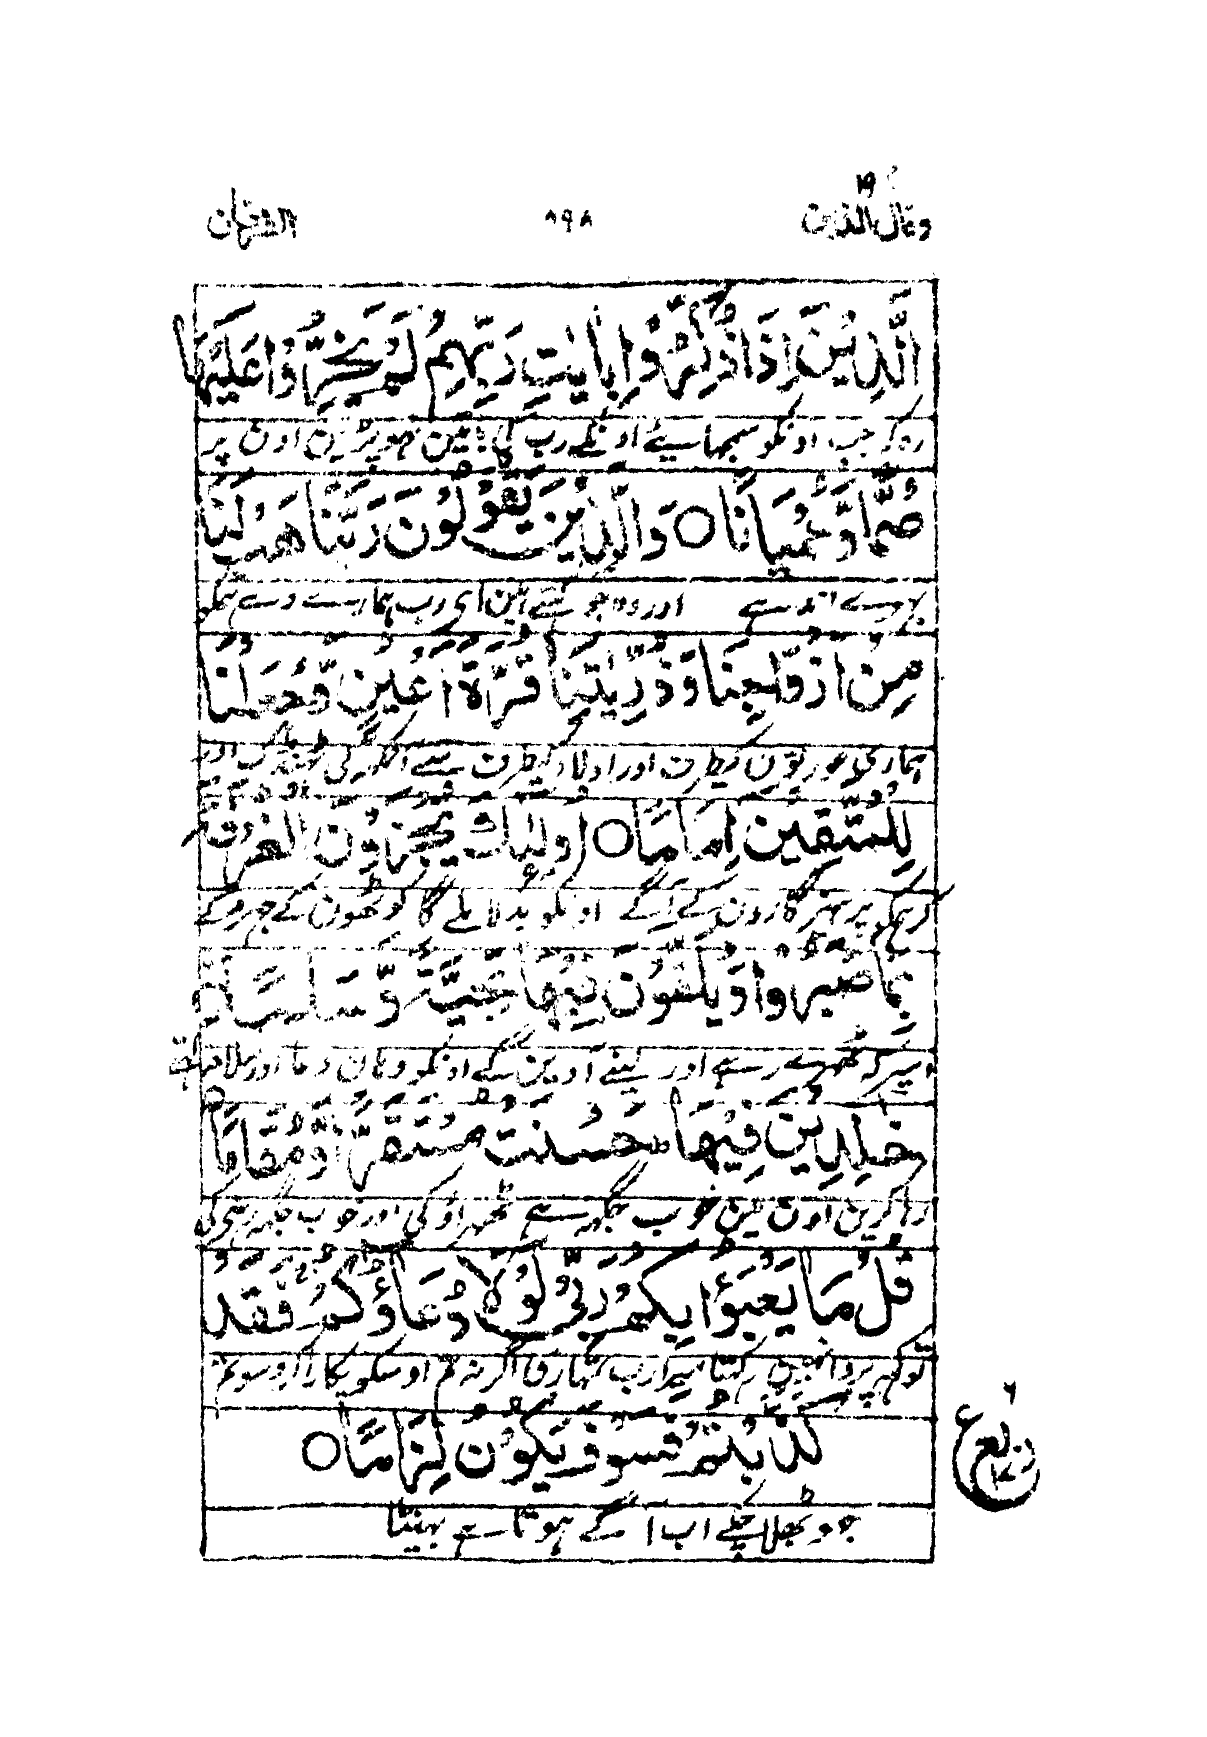 وقال الذين ١٩
٨٩٨
الفرقان
الَّذِيْنَ اِذَا ذُكِّرُوْا بِاٰيٰتِ رَبِّهِمْ لَمْ يَخِرُّوْا عَلَيْهَا
وہ کہ جب اونکو سمجھائیے اونکے رب کی باتین نہو پڑین اون پر
صُمًّا وَّعُمْيَانًا ○ وَالَّذِيْنَ يَقُوْلُوْنَ رَبَّنَا هَبْ لَنَا
بہرے اندہے اور وہ جو کہتے ہین ای رب ہمارے دے ہمکو
مِنْ اَزْوَاجِنَا وَذُرِّيّٰتِنَا قُرَّةَ اَعْيُنٍ وَّاجْعَلْنَا
ہماری عورتون کیطرف اور اولاد کیطرف سے آنکھہ کی ٹھنڈک اور
لِلْمُتَّقِيْنَ اِمَامًا ○ اُولٰٓئِكَ يُجْزَوْنَ الْغُرْفَةَ
کر ہمکو پرہیزگارون کے آگے اونکو بدلا ملے گا کوٹھون کے جہروکے
بِمَا صَبَرُوْا وَيُلَقَّوْنَ فِيْهَا تَحِيَّةً وَّسَلٰمًا
اوسپر کہ ٹھہرے رہے اور لینے آوین گے اونکو وہان دعا اور سلام
خٰلِدِيْنَ فِيْهَا حَسُنَتْ مُسْتَقَرًّا وَّمُقَامًا
رہا کرین اون مین خوب جگہہ ہے ٹھہراؤ کی اور خوب جگہہ رہنے کی
قُلْ مَا يَعْبَؤُا بِكُمْ رَبِّيْ لَوْلَا دُعَآؤُكُمْ فَقَدْ
تو کہہ پروا نہین رکہتا میرا رب تمہاری اگر نہ تم اوسکو پکارا کرو سو تم
كَذَّبْتُمْ فَسَوْفَ يَكُوْنُ لِزَامًا ○
جو جھٹلا چکے اب آگے ہوتا ہے بھینٹا
ع